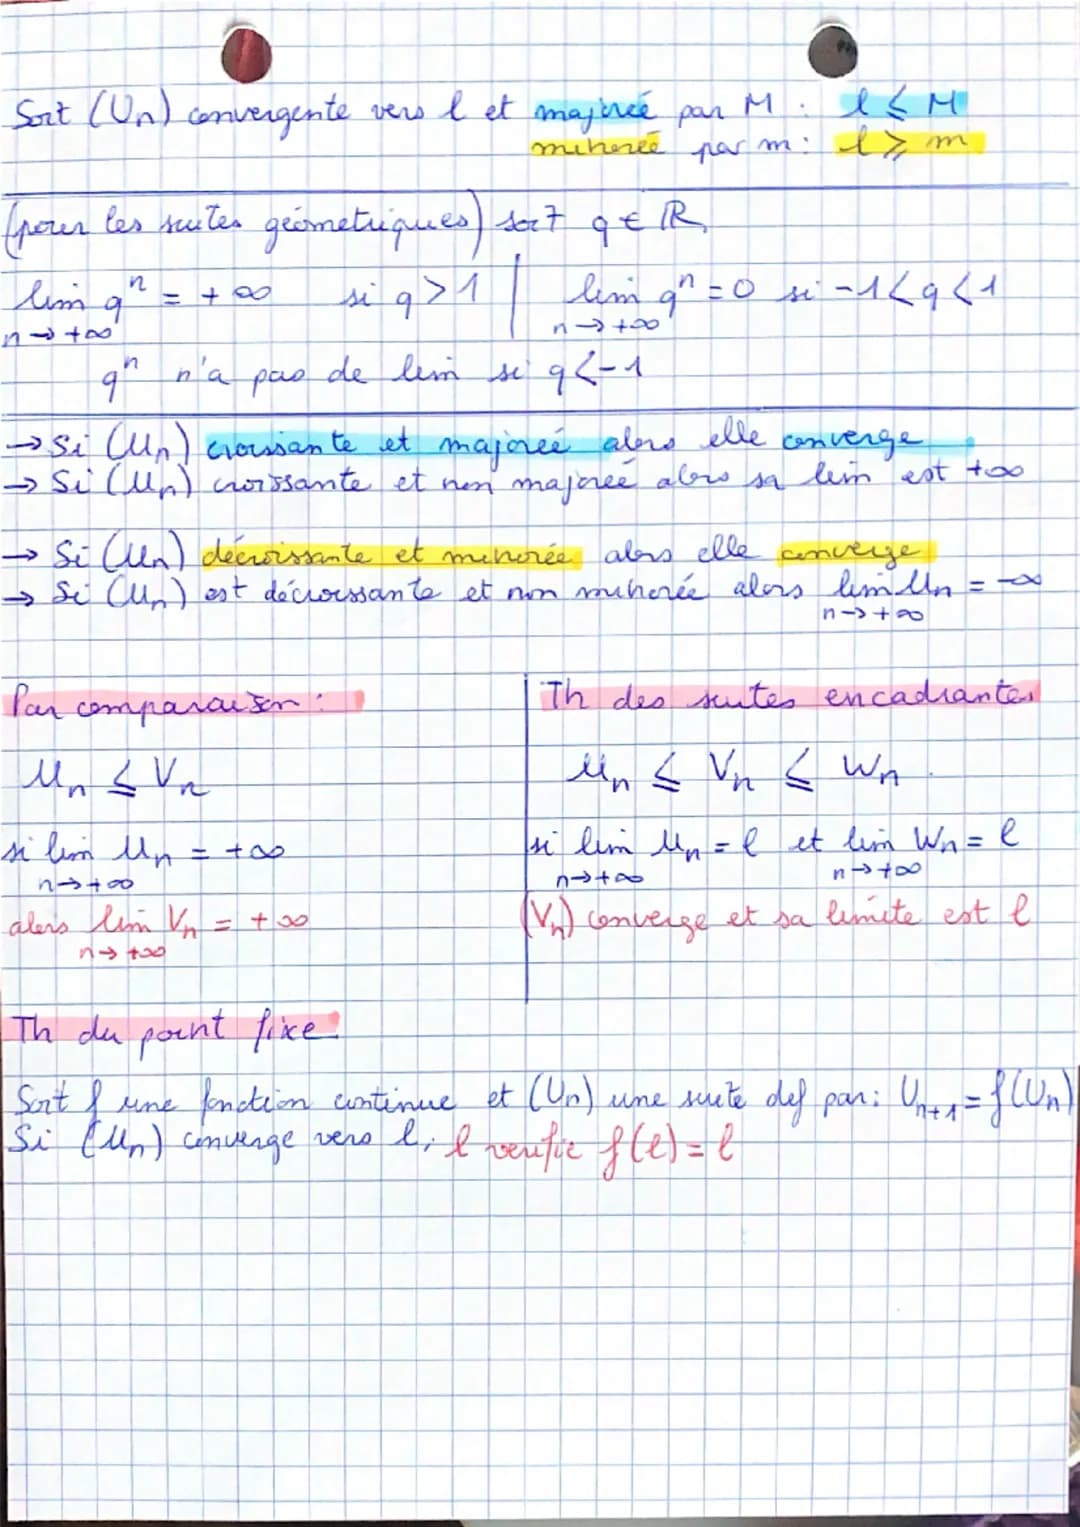 Soit (Un) convergente vers l et majorée par M : l ≤ M
minorée par m : l ≥ m
(pour les suites géométriques) soit q ∈ ℝ
lim qⁿ = +∞ si q > 1 | lim qⁿ = 0 si -1 < q < 1
n→+∞ n→+∞
qⁿ n'a pas de lim si q < -1
→ Si (Un) croissante et majoreé alors elle converge
→ Si (Un) croissante et non majoreé alors sa lim est +∞
→ Si (Un) décroissante et minorée alors elle converge
→ Si (Un) est décroissante et non minorée alors lim Un = -∞
n→+∞
Par comparaison :
Un ≤ Vn
si lim Un = +∞
n→+∞
alors lim Vn = +∞
n→+∞
Th des suites encadrantes
Un ≤ Vn ≤ Wn
si lim Un = l et lim Wn = l
n→+∞ n→+∞
(Vn) converge et sa limite est l
Th du point fixe
Soit f une fonction continue et (Un) une suite def par : Un+1 = f(Un)
Si (Un) converge vers l, l verifie f(l) = l